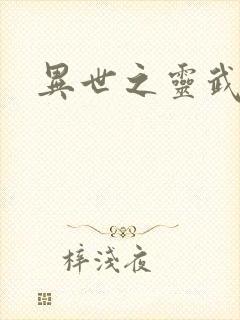 異世之靈武
梓淺夜